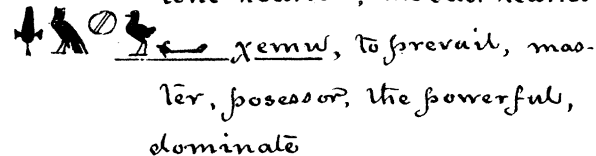 𓅓𓐍𓅱 χemu, to prevail, mas-
ter, posessor, the powerful,
dominate